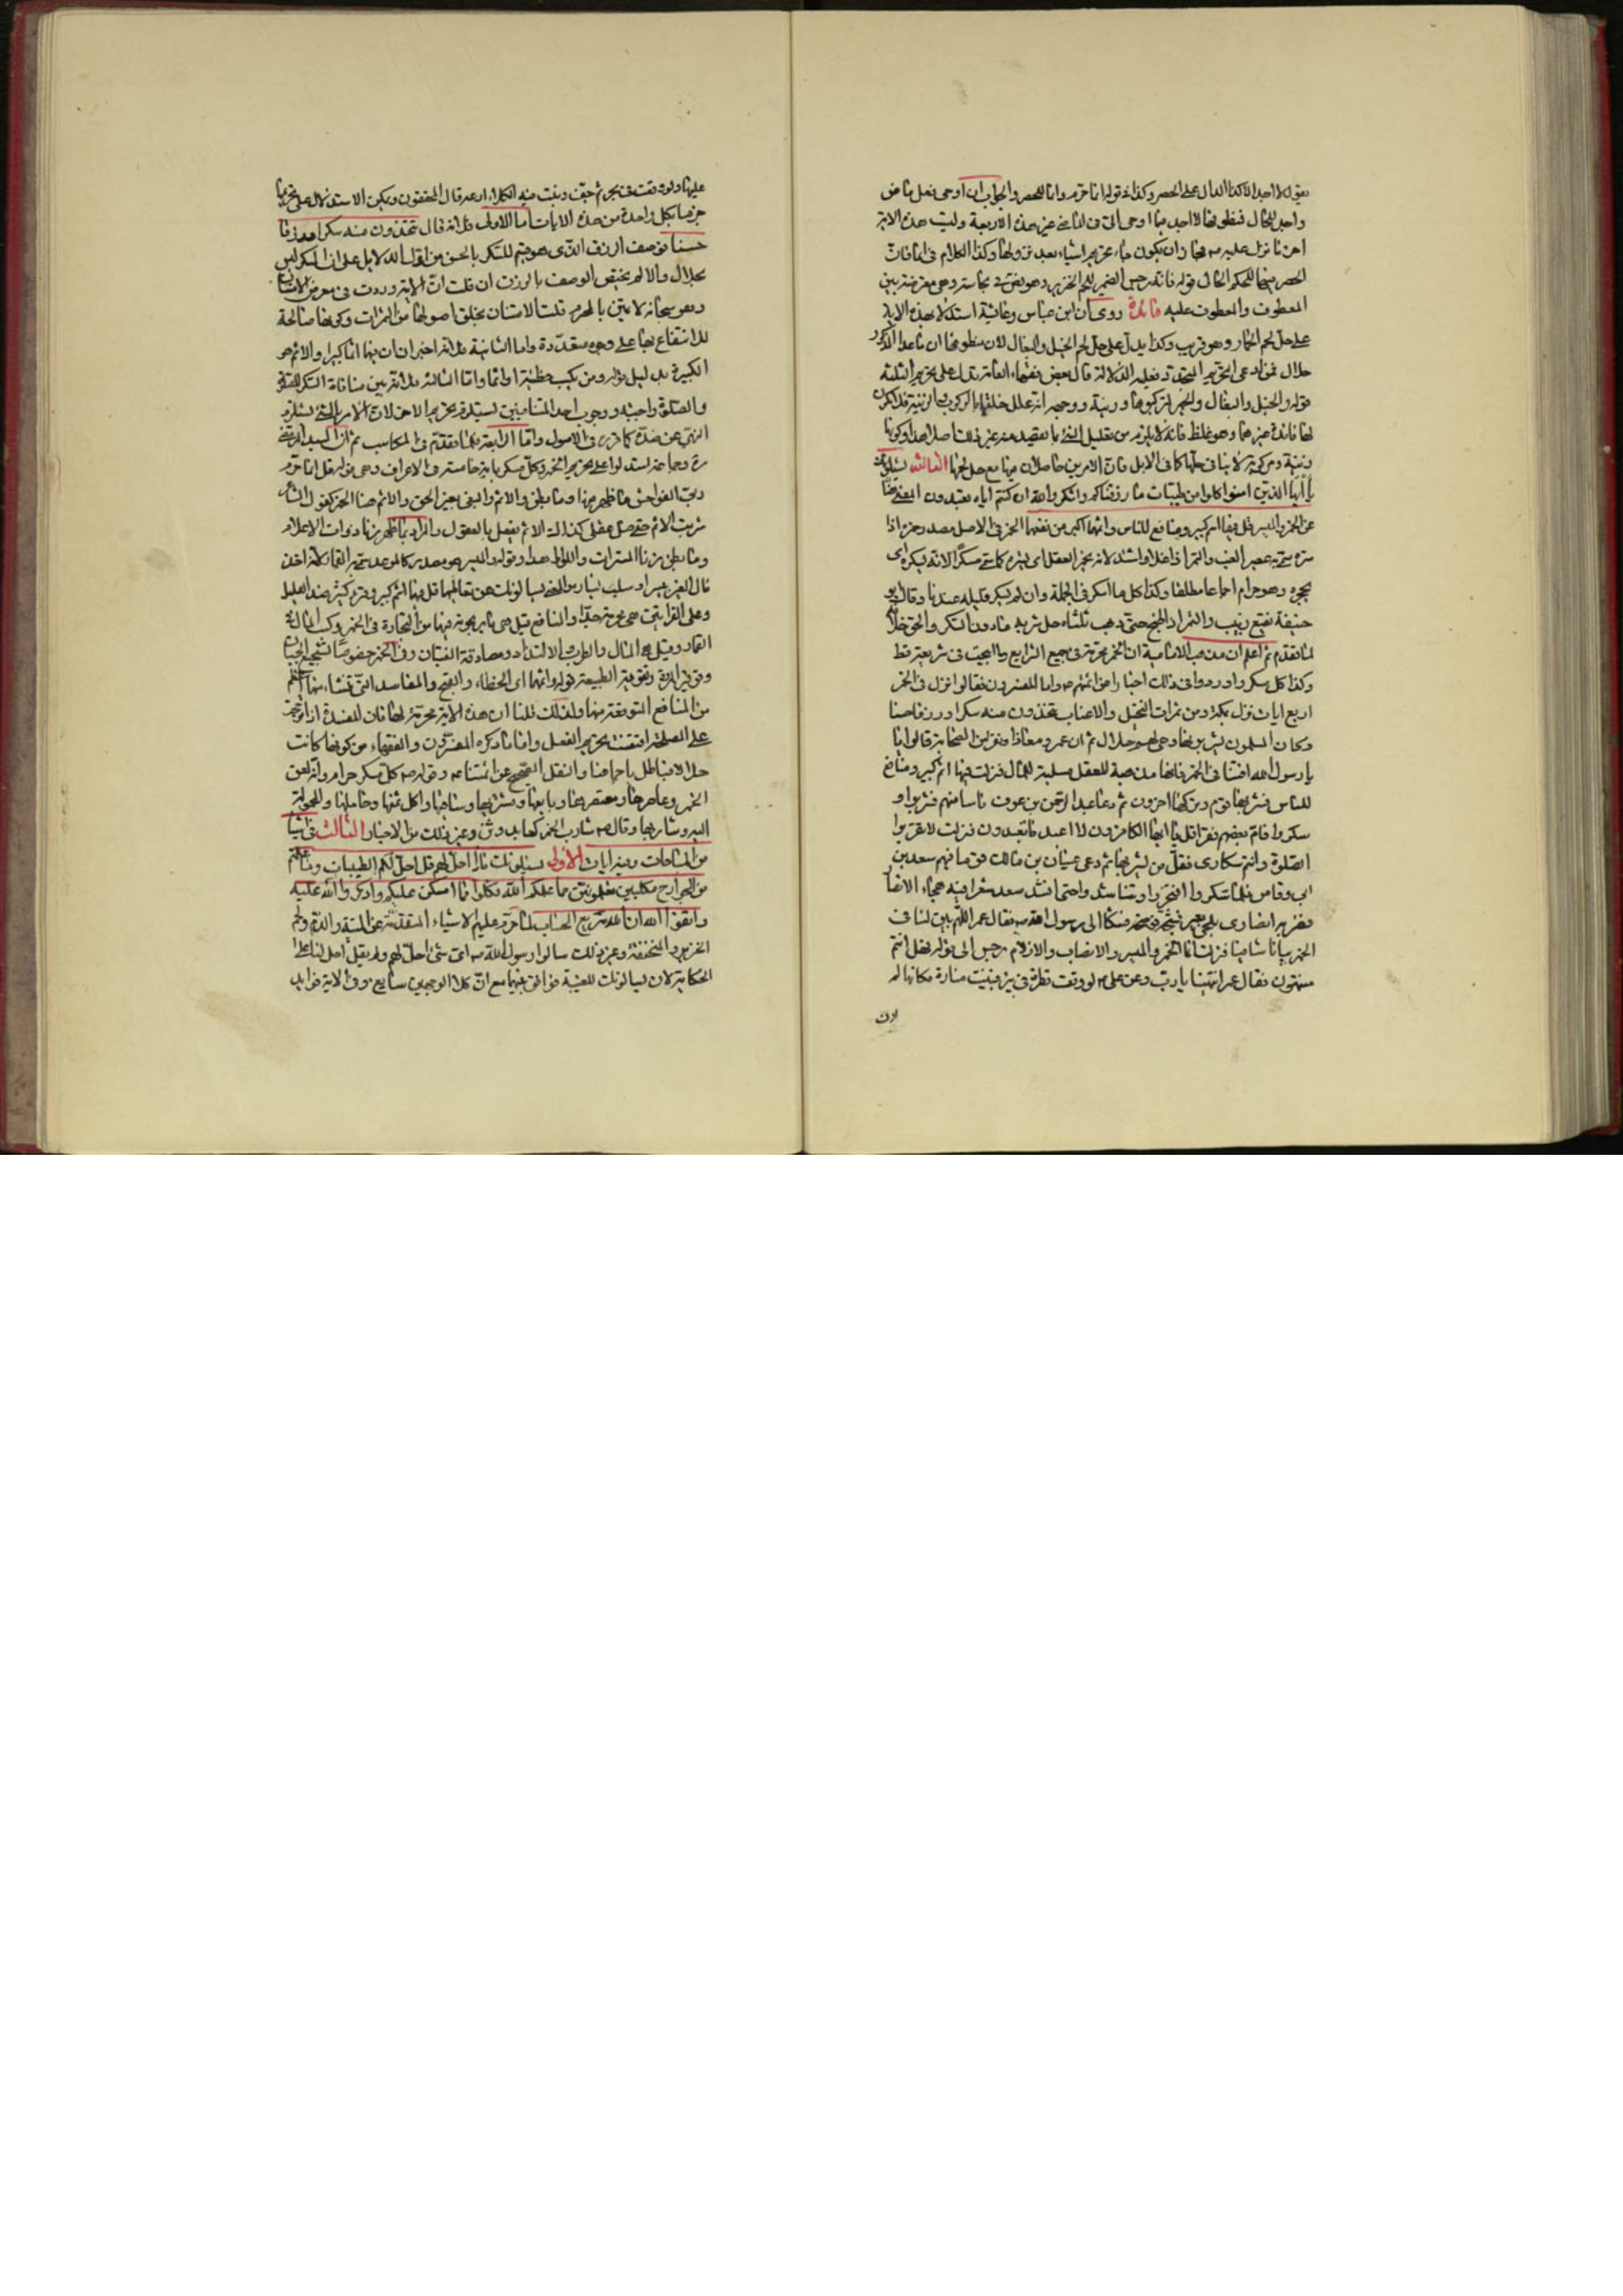 بقوله لا اجد الا كذا الدال على الحصر وكذا في قوله انما حرم وانما للحصر والجواب ان اوحى فعل ماض
واجد للحال فمنطوقها لا اجد فيما اوحى الي في الماضي غير هذه الاربعة وليست هذه الاية
اخر ما نزل عليه ص فجاز ان يكون جاء تحريم اشياء بعد نزولها وكذا الكلام في انما فان
الحصر فيها للحكم الحال قوله فانه رجس الضمير للحم الخنزير وهو نص في نجاسته وهي معترضة بين
المعطوف والمعطوف عليه فائدة روي ان ابن عباس وعائشة استدلا بهذه الاية
على حل لحم الحمار وهو قريب وكذا يدل على حل لحم الخيل والبغال لان منطوقها ان ما عدا المذكور
حلال فمن ادعى التحريم المتجدد فعليه الدلالة قال بعض فقهاء العامة يدل على تحريم الثلثة
قوله والخيل والبغال والحمير لتركبوها وزينة ووجهه انه علل خلقها بالركوب والزينة فلا يكون
لها فائدة غيرهما وهو غلط فانه لا يلزم من تعليل الشيء بما يقصد منه غير ذلك اصلا
زينة ومركوبة لا ينافي حلها كما في الابل فان الامرين حاصلان فيها مع حل لحمها الثالثة يسئلونك
يا ايها الذين امنوا كلوا من طيبات ما رزقناكم واشكروا لله ان كنتم اياه تعبدون
عن الخمر والميسر قل فيهما اثم كبير ومنافع للناس واثمهما اكبر من نفعهما الخمر في الاصل مصدر خمره اذا
ستره سمي به عصير العنب والتمر اذا غلا واشتد لانه يخمر العقل اي يستره كما سمي مسكرا لانه يسكره اي
يحجزه وهو حرام اجماعا مطلقا وكذا كل ما اسكر في الجملة وان لم يسكر قليله عندنا وقال ابو
حنيفة نقيع الزبيب والتمر اذا طبخ حتى ذهب ثلثاه حل شربه ما دون السكر والحق خلافه
لما تقدم ثم اعلم ان مذهب الامامية ان الخمر محرمة في جميع الشرايع وما ابيحت في شريعة قط
وكذا كل مسكر واوردوا في ذلك اخبارا عن ائمتهم ع واما المفسرون فقالوا نزل في الخمر
اربع ايات نزل بمكة ومن ثمرات النخيل والاعناب تتخذون منه سكرا ورزقا حسنا
وكان المسلمون يشربونها وهي لهم حلال ثم ان عمر ومعاذا ونفرا من الصحابة قالوا
يا رسول الله افتنا في الخمر فانها مذهبة للعقل مسلبة للمال فنزلت فيهما اثم كبير ومنافع
للناس فشربها قوم وتركها اخرون ثم دعا عبد الرحمن بن عوف ناسا منهم فشربوا و
سكروا فام بعضهم فقرا قل يا ايها الكافرون لا اعبد ما تعبدون فنزلت لا تقربوا
الصلوة وانتم سكارى فقل من يشربها ثم دعى عتبان بن مالك قوما فيهم سعد بن
ابي وقاص فلما سكروا افتخروا وتناشدوا حتى انشد سعد شعرا فيه هجاء الانصار
فضربه انصاري بلحي بعير فشجه موضحة فشكا الى رسول الله ص فقال عمر اللهم بين لنا في
الخمر بيانا شافيا فنزلت انما الخمر والميسر والانصاب والازلام رجس الى قوله فهل انتم
منتهون فقال عمر انتهينا يا رب وعن علي ع لو وقعت قطرة في بئر فبنيت منارة مكانها لم
اوذن
عليها ولو وقعت في بحر ثم جف ونبت فيه الكلاء لم ارعه قال المحققون ويمكن الاستدلال على تحريمها
بكل واحدة من هذه الايات اما الاولى فلانه قال تتخذون منه سكرا ورزقا
حسنا فوصف الرزق الذي هو قسيم للسكر بالحسن من اقوى الدلايل على ان السكر ليس
بحلال والا لم يختص الوصف بالرزق ان قلت ان الاية وردت في معرض الامتنان
وهو سبحانه لا يمتن بالمحرم قلت الامتنان بخلق اصولها من الثمرات وكونها صالحة
للانتفاع بها على وجوه متعددة واما الثانية فلانه اخبر ان فيها اثما كبيرا والاثم هو
الكبيرة بدليل قوله ومن يكسب خطيئة او اثما واما الثالثة فلانه بين منافاة السكر للصلوة
والصلوة واجبة ووجوب احد المتنافيين يستلزم تحريم الاخر لان الامر بالشيء يستلزم
النهي عن ضده كما قرر في الاصول واما الرابعة فلما تقدم في المكاسب ثم ان السيد المرتضى
ره وجماعة استدلوا على تحريم الخمر وكل مسكر باية خامسة في الاعراف وهي قوله قل انما حرم
ربي الفواحش ما ظهر منها وما بطن والاثم والبغي بغير الحق والاثم هنا الخمر كقول الشاعر
شربت الاثم حتى ضل عقلي كذلك الاثم يفعل بالعقول والمراد بما ظهر زنا ذوات الاعلام
وما بطن زنا المستترات واللواط هذا وقوله والميسر هو مصدر كالموعد سمي به القمار لانه اخذ
مال الغير بيسر او سلب يساره والمعنى يسالونك عن تعاطيهما قل فيهما اثم كبير وقرئ كثير ضد القليل
وعلى القرائتين هي محرمة جدا والمنافع قيل هي ما يربحونه فيها من التجارة في الخمر وكسب المال في
القمار وقيل هو المال والطرب والالتذاذ ومصادقة الفتيان وفي الخمر خصوصا تشجيع الجبان
وتوفير المروة وتقوية الطبيعة قوله واثمهما اي الخطاء والقبح والمفاسد التي تنشاء منهما اعظم
من المنافع المتوقعة منهما ولذلك قلنا ان هذه الاية محرمة لها فان المفسدة اذا ترجحت
على المصلحة اقتضت تحريم الفعل واما ما ذكره المفسرون والفقهاء من كونها كانت
حلالا فباطل باجماعنا والنقل الصحيح عن ائمتنا ع وقوله ص كل مسكر حرام وانه لعن
الخمر وعاصرها ومعتصرها وبايعها ومشتريها وساقيها واكل ثمنها وحاملها والمحمولة
اليه وشاربها وقال ص شارب الخمر كعابد وثن وغير ذلك من الاخبار الثالث في اشياء
من المباحات وفيه ايات الاولى يسئلونك ماذا احل لهم قل احل لكم الطيبات وما علمتم
من الجوارح مكلبين تعلمونهن مما علمكم الله فكلوا مما امسكن عليكم واذكروا الله عليه
واتقوا الله ان الله سريع الحساب لما حرم عليهم الاشياء المتقدمة من الميتة والدم ولحم
الخنزير والمنخنقة وغير ذلك سالوا رسول الله ص اي شيء احل لهم ولم يقل احل لنا على
الحكاية لان يسالونك للغيبة فوافق بينهما مع ان كلا الوجهين سايغ وفي الاية فوايد